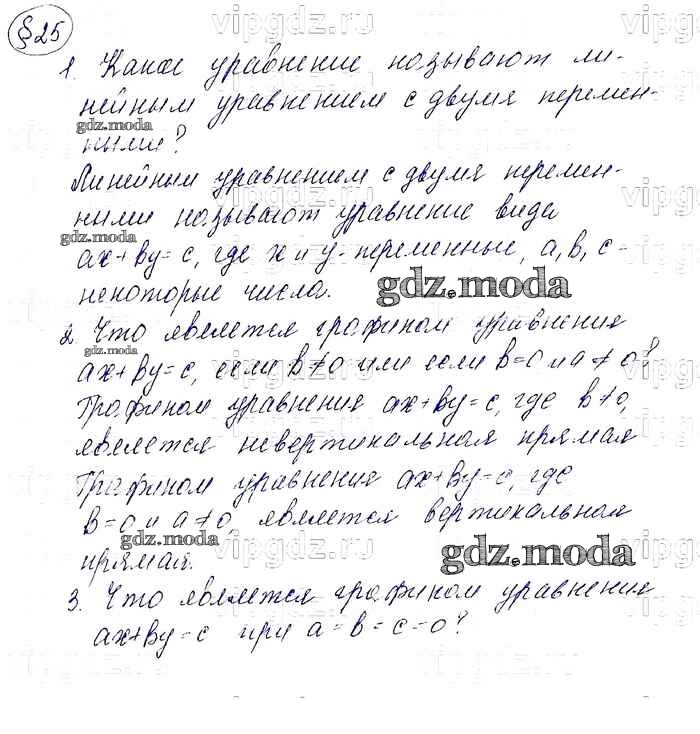 §25
1. Какое уравнение называют ли-
нейным уравнением с двумя перемен-
ными?
Линейным уравнением с двумя перемен-
ными называют уравнение вида
ax+by=c, где x и y- переменные, a, b, c -
некоторые числа.
2. Что является графиком уравнения
ax+by=c, если b≠0 или если b=0 и a≠0?
Графиком уравнения ax+by=c, где b≠0,
является невертикальная прямая
Графиком уравнения ax+by=c, где
b=0 и a≠0 является вертикальная
прямая.
3. Что является графиком уравнения
ax+by=c при a=b=c=0?
gdz.moda
gdz.moda
gdz.moda
gdz.moda
gdz.moda
gdz.moda
vipgdz.ru